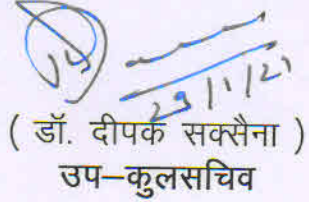 29/1/21
( डॉ. दीपक सक्सैना )
उप–कुलसचिव